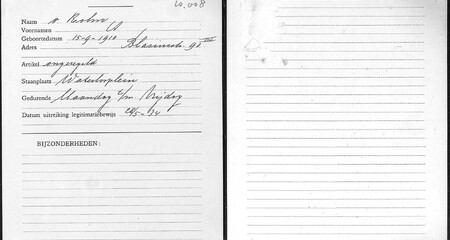 10.008
Naam v. Reslow
Voornamen A
Geboortedatum 15-9-1910
Adres Blasiusstr. 90 III
Artikel ongeregeld
Staanplaats Waterlooplein
Gedurende Maandag t/m Vrijdag
Datum uitreiking legitimatiebewijs 28/5-'74
BIJZONDERHEDEN: